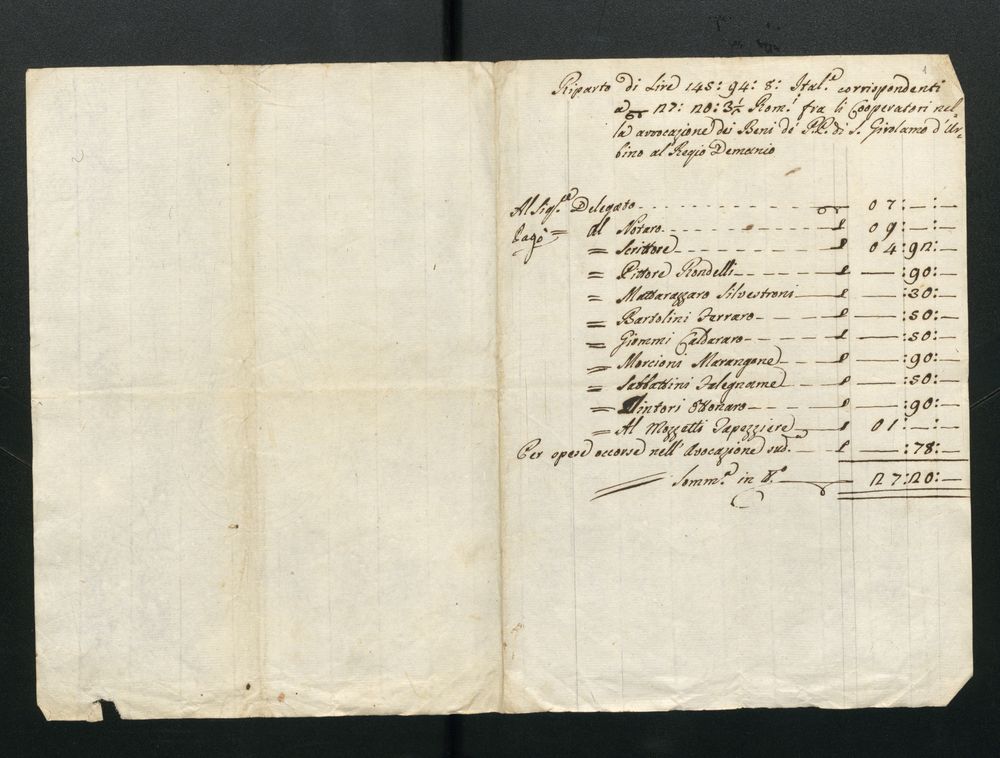 Riparto di Lire 145: 94: 8: Ital.e corrispondenti
a 27: 20: 3½ Rom.i fra li Cooperatori nel-
la avvocazione dei Beni dé P.P. di S. Girolamo d'Ur-
bino al Regio Demanio
Al Sig.re Delegato 07:—:—
= al Notaro 09:—:—
= Scrittore 04:92:—
= Pittore Rondelli —:90:—
= Mattarazzaro Silvestroni —:30:—
= Bartolini Ferraro —:50:—
= Giommi Caldararo —:50:—
= Morcioni Marangone —:90:—
= Sabbattini Falegname —:50:—
= Ottonaro —:90:—
= Al Mozzetti Tapezziere 01:—:—
Per opere occorse nell'Avocazione sud.a —:78:—
Somm.a in 27:20:—